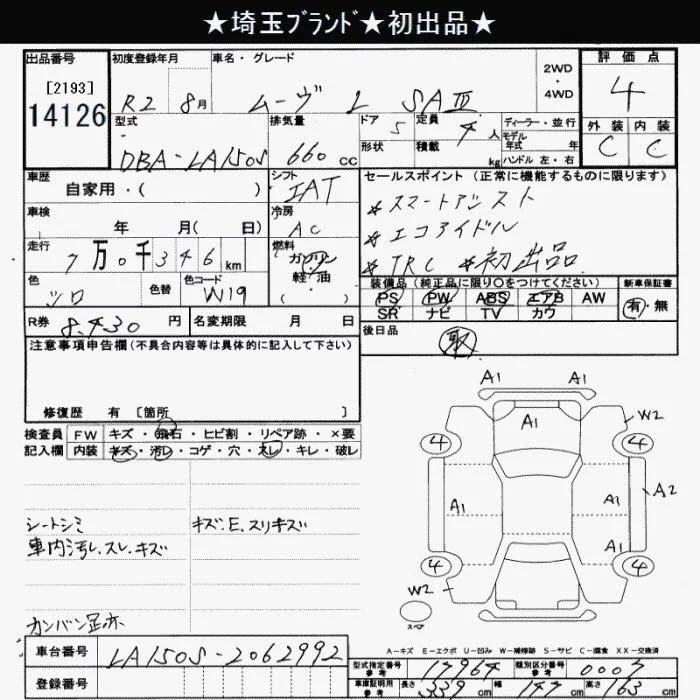 ★埼玉ﾌﾞﾗﾝﾄﾞ★初出品★
出品番号
[2193]
14126
初度登録年月
R2 8月
車名・グレード
ムーヴ L SAⅢ
2WD
・
4WD
評価点
4
外装 内装
C C
型式
DBA-LA150S
排気量
660 cc
ドア 5
形状
定員 4 人
積載 kg
ディーラー・並行
モデル年式 年
ハンドル 左・右
車歴
自家用・( )
シフト
IAT
セールスポイント (正常に機能するものに限ります)
*スマートアシスト
*エコアイドル
*TRC *初出品
車検
年 月( 日)
冷房
AC
走行
7万0千346km
燃料
ガソリン
軽・油
( )
色
シロ
色替
色コード
W19
装備品 (純正品に限り○をつけてください)
PS PW ABS エアB AW
SR ナビ TV カワ
新車保証書
有・無
R券 8,430 円
名変期限 月 日
後日品
取
注意事項申告欄(不具合内容等は具体的に記入して下さい)
修復歴 有 [箇所 ]
検査員 FW キズ・飛石・ヒビ割・リペア跡・×要
記入欄 内装 キズ・汚レ・コゲ・穴・スレ・キレ・破レ
シートシミ
車内汚レ、スレ、キズ
キズ.E.スリキズ
カンバン足赤
A1 A1
A1
W2
4 4
A1 A1 A2
A1
4 4
W2
スペア
A-キズ E-エクボ U-凹み W-補修跡 S-サビ C-腐食 XX-交換済
車台番号 LA150S-2062992
登録番号
型式指定番号 参考 17964
類別区分番号 参考 0007
車庫証明用 参考 長さ 339 cm 幅 147 cm 高さ 163 cm